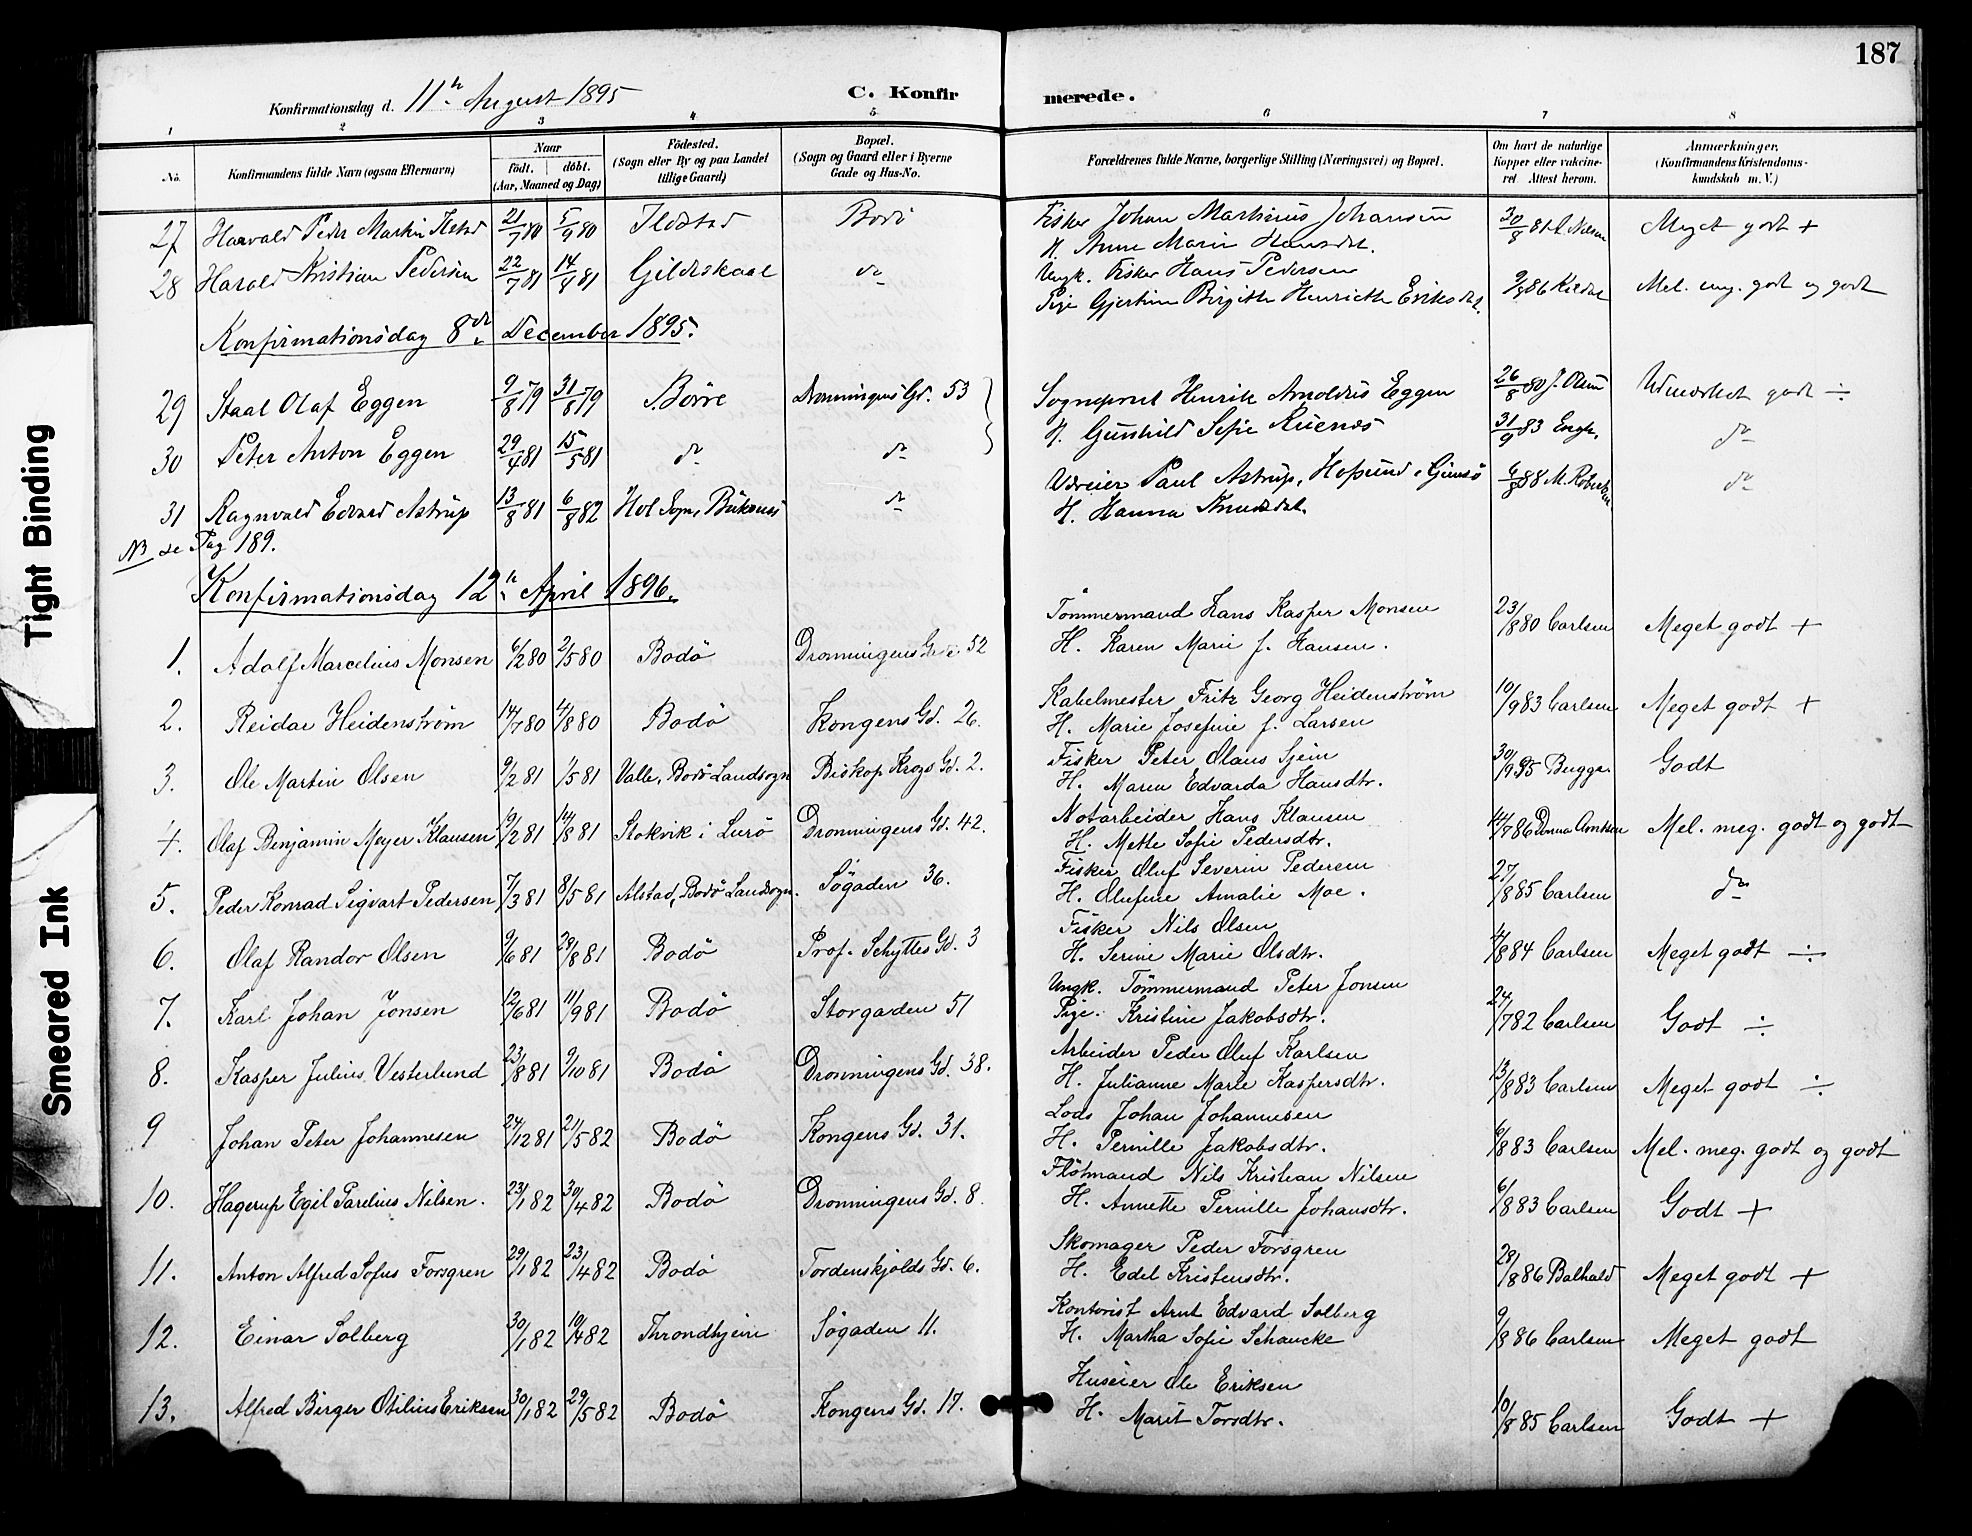 187
Konfirmationsdag d. 11te August 1895
C. Konfirmerede.
1 2 3 4 5 6 7 8
No.
Konfirmandens fulde Navn (ogsaa Efternavn)
Naar
födt. döbt.
(Aar, Maaned og Dag)
Födested.
(Sogn eller By og paa Landet
tillige Gaard)
Bopæl.
(Sogn og Gaard eller i Byerne
Gade og Hus-No.
Forældrenes fulde Navne, borgerlige Stilling (Næringsvei) og Bopæl.
Om havt de naturlige
Kopper eller vakcine-
ret. Attest herom.
Anmærkninger.
(Konfirmandens Kristendoms-
kundskab m. V.)
27 Harvald Peder Martin Ilstad 21/7 80 5/9 80 Ildstad Bodö Fisker Johan Martinus Johansen 30/8 81 A. Nilsen Meget godt +
H. Anne Marie Hansdat.
28 Harald Kristian Pedersen 22/7 81 14/9 81 Gildeskaal do Ungk. Fisker Hans Pedersen
Pige Gjertine Birgitte Henriette Eriksdat. 9/8 86 Mel. mg. godt og godt
Konfirmationsdag 8de December 1895.
29 Staal Olaf Eggen 9/8 79 31/8 79 Börre Dronningens Gd. 53 Sogneprest Henrik Arnoldus Eggen 26/8 80 J. Olsen Udmærket godt ÷
H. Gunhild Sofie
30 Peter Anton Eggen 29/4 81 15/5 81 do do 31/9 83 Engh. do
31 Ragnvald Edvard Astrup 13/8 81 6/8 82 Hol Sogn, Buksnes do Væreier Paul Astrup, Hopsund i Gimsö 6/8 88 M. do
H. Hanna
NB se Pag 189.
Konfirmationsdag 12te April 1896.
1. Adolf Marcelius Monsen 6/2 80 2/5 80 Bodö Dronningens Gade 52 Tömmermand Hans Kasper Monsen 23/8 80 Carlsen Meget godt +
H. Karen Marie f. Hansen.
2. Reidar Heidenström 14/7 80 4/8 80 Bodö Kongens Gd. 26. Kabelmester Fritz Georg Heidenström 10/9 83 Carlsen Meget godt +
H. Marie Josefine f. Larsen
3. Ole Martin Olsen 9/2 81 1/5 81 Valle, Bodö Landsogn Biskop Krogs Gd. 2. Fisker Peter Olaus Sjem 30/9 95 Bugge. Godt
H. Maren Edvarda Hansdtr.
4. Olaf Benjamin Meyer Klausen 19/2 81 14/8 81 Stokvik i Lurö Dronningens Gd. 42. Notarbeider Hans Klausen 14/7 86 Mel. meg. godt og godt
H. Mette Sofie Pedersdtr.
5. Peder Konrad Sigvart Pedersen 7/3 81 8/5 81 Alstad, Bodö Landsogn. Søgaden 36. Fisker Oluf Severin Pedersen 27/8 85 Carlsen do
H. Olufine Amalie Moe.
6. Olaf Randor Olsen 9/6 81 28/8 81 Bodö Prof. Schyttes Gd. 3 Fisker Nils Olsen 4/8 84 Carlsen Meget godt ÷
H. Serine Marie Olsdtr.
7. Karl Johan Jonsen 12/6 81 11/9 81 Bodö Storgaden 51 Ungk. Tömmermand Peter Jonsen 24/7 82 Carlsen Godt ÷
Pige. Kristine Jakobsdtr.
8. Kasper Julius Vesterlund 23/8 81 9/10 81 Bodö Dronningens Gd. 38. Arbeider Peder Oluf Karlsen 13/8 83 Carlsen Meget godt ÷
H. Julianne Marie Kaspersdtr.
9 Johan Peter Johannesen 24/12 81 21/5 82 Bodö Kongens Gd. 31. Lods Johan Johannesen 6/8 83 Carlsen Mel. meg. godt og godt
H. Pernille Jakobsdtr.
10. Hagerup Egil Parelius Nilsen. 23/1 82 30/4 82 Bodö Dronningens Gd. 8. Flötmand Nils Kristian Nilsen 6/8 83 Carlsen Godt +
H. Annette Pernille Johansdtr.
11. Anton Alfred Sofus Forsgren 29/1 82 23/4 82 Bodö Tordenskjolds Gd. 6. Skomager Peder Forsgren 28/8 86 Balhald Meget godt +
H. Edel Kristensdtr.
12. Einar Solberg 30/1 82 10/4 82 Throndhjem Søgaden 11. Kontorist Arnt Edvard Solberg 9/8 86 Carlsen Meget godt
H. Martha Sofie Schancke
13. Alfred Birger Otilius Eriksen 30/1 82 29/5 82 Bodö Kongens Gd. 17. Huseier Ole Eriksen 10/8 85 Carlsen Godt +
H. Marit Torsdtr.
Tight Binding
Smeared Ink